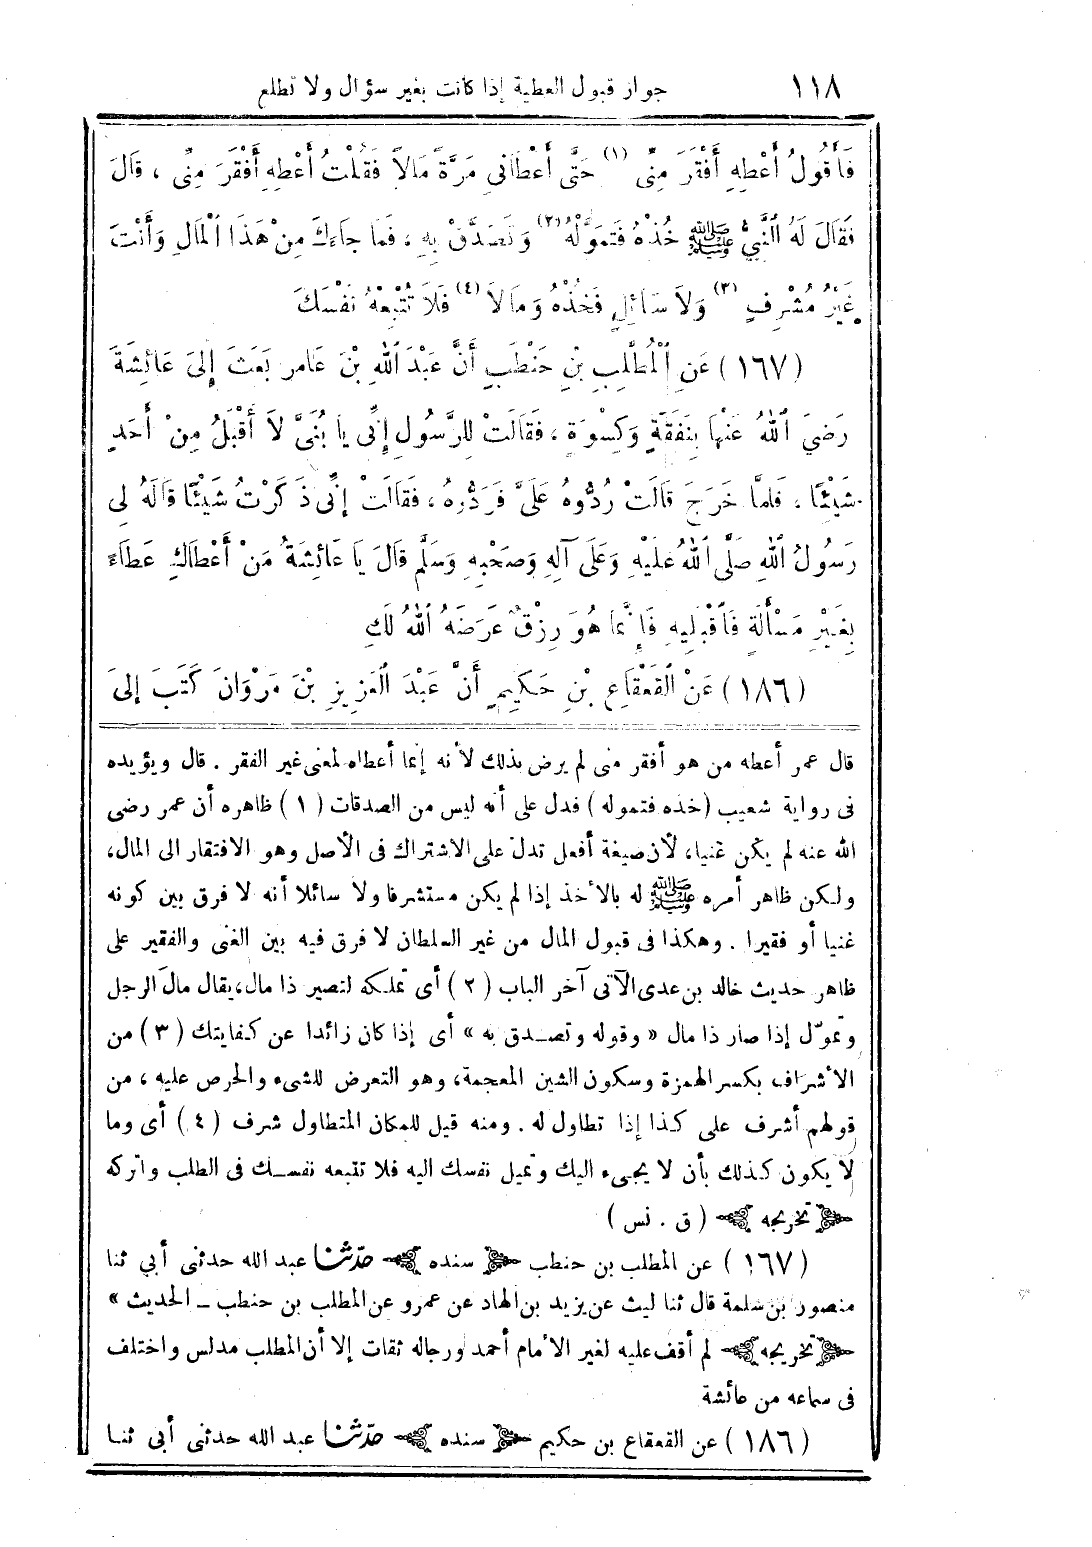 ١١٨ جواز قبول العطية إذا كانت بغير سؤال ولا تطلع
فَأَقُولُ أَعْطِهِ أَفْقَرَ مِنِّى (١) حَتَّى أَعْطَانِى مَرَّةً مَالاً فَقُلْتُ أَعْطِهِ أَفْقَرَ مِنِّى ، قَالَ
فَقَالَ لَهُ النَّبِىُّ ﷺ خُذْهُ فَتَمَوَّلْهُ (٢) وَتَصَدَّقْ بِهِ ، فَمَا جَاءَكَ مِنْ هَذَا الْمَالِ وَأَنْتَ
غَيْرُ مُشْرِفٍ (٣) وَلاَ سَائِلٍ فَخُذْهُ وَمَالاَ (٤) فَلاَ تُتْبِعْهُ نَفْسَكَ
(١٦٧) عَنِ الْمُطَّلِبِ بْنِ حَنْطَبٍ أَنَّ عَبْدَ اللهِ بْنَ عَامِرٍ بَعَثَ إِلَى عَائِشَةَ
رَضِيَ اللهُ عَنْهَا بِنَفَقَةٍ وَكِسْوَةٍ ، فَقَالَتْ لِلرَّسُولِ إِنِّى يَا بُنَىَّ لاَ أَقْبَلُ مِنْ أَحَدٍ
شَيْئًا ، فَلَمَّا خَرَجَ قَالَتْ رُدُّوهُ عَلَىَّ فَرَدُّوهُ ، فَقَالَتْ إِنِّى ذَكَرْتُ شَيْئًا قَالَهُ لِى
رَسُولُ اللهِ صَلَّى اللهُ عَلَيْهِ وَعَلَى آلِهِ وَصَحْبِهِ وَسَلَّمَ قَالَ يَا عَائِشَةُ مَنْ أَعْطَاكِ عَطَاءً
بِغَيْرِ مَسْأَلَةٍ فَاقْبَلِيهِ فَإِنَّمَا هُوَ رِزْقٌ عَرَضَهُ اللهُ لَكِ
(١٨٦) عَنْ الْقَعْقَاعِ بْنِ حَكِيمٍ أَنَّ عَبْدَ الْعَزِيزِ بْنَ مَرْوَانَ كَتَبَ إِلَىَ
قال عمر أعطه من هو أفقر منى لم يرض بذلك لأنه إنما أعطاه لمعنى غير الفقر . قال ويؤيده
فى رواية شعيب (خذه فتموله) فدل على أنه ليس من الصدقات (١) ظاهره أن عمر رضى
الله عنه لم يكن غنيا، لأن صيغة أفعل تدل على الاشتراك فى الأصل وهو الافتقار الى المال،
ولكن ظاهر أمره ﷺ له بالأخذ إذا لم يكن مستشرفا ولا سائلا أنه لا فرق بين كونه
غنيا أو فقيرا . وهكذا فى قبول المال من غير السلطان لا فرق فيه بين الغنى والفقير على
ظاهر حديث خالد بن عدى الآتى آخر الباب (٢) أى تملكه لتصير ذا مال، يقال مال الرجل
وتموّل إذا صار ذا مال « وقوله وتصدق به » أى إذا كان زائدا عن كفايتك (٣) من
الأشراف بكسر الهمزة وسكون الشين المعجمة، وهو التعرض للشىء والحرص عليه ، من
قولهم أشرف على كذا إذا تطاول له . ومنه قيل للمكان المتطاول شرف (٤) أى وما
لا يكون كذلك بأن لا يجىء اليك وتميل نفسك اليه فلا تتبعه نفسك فى الطلب واتركه
تخريجه (ق . نس)
(١٦٧) عن المطلب بن حنطب سنده حدّثنا عبد الله حدثنى أبي ثنا
منصور بن سلمة قال ثنا ليث عن يزيد بن الهاد عن عمرو عن المطلب بن حنطب ــ الحديث »
تخريجه لم أقف عليه لغير الأمام أحمد ورجاله ثقات إلا أن المطلب مدلس واختلف
فى سماعه من عائشة
(١٨٦) عن القعقاع بن حكيم سنده حدّثنا عبد الله حدثنى أبى ثنا